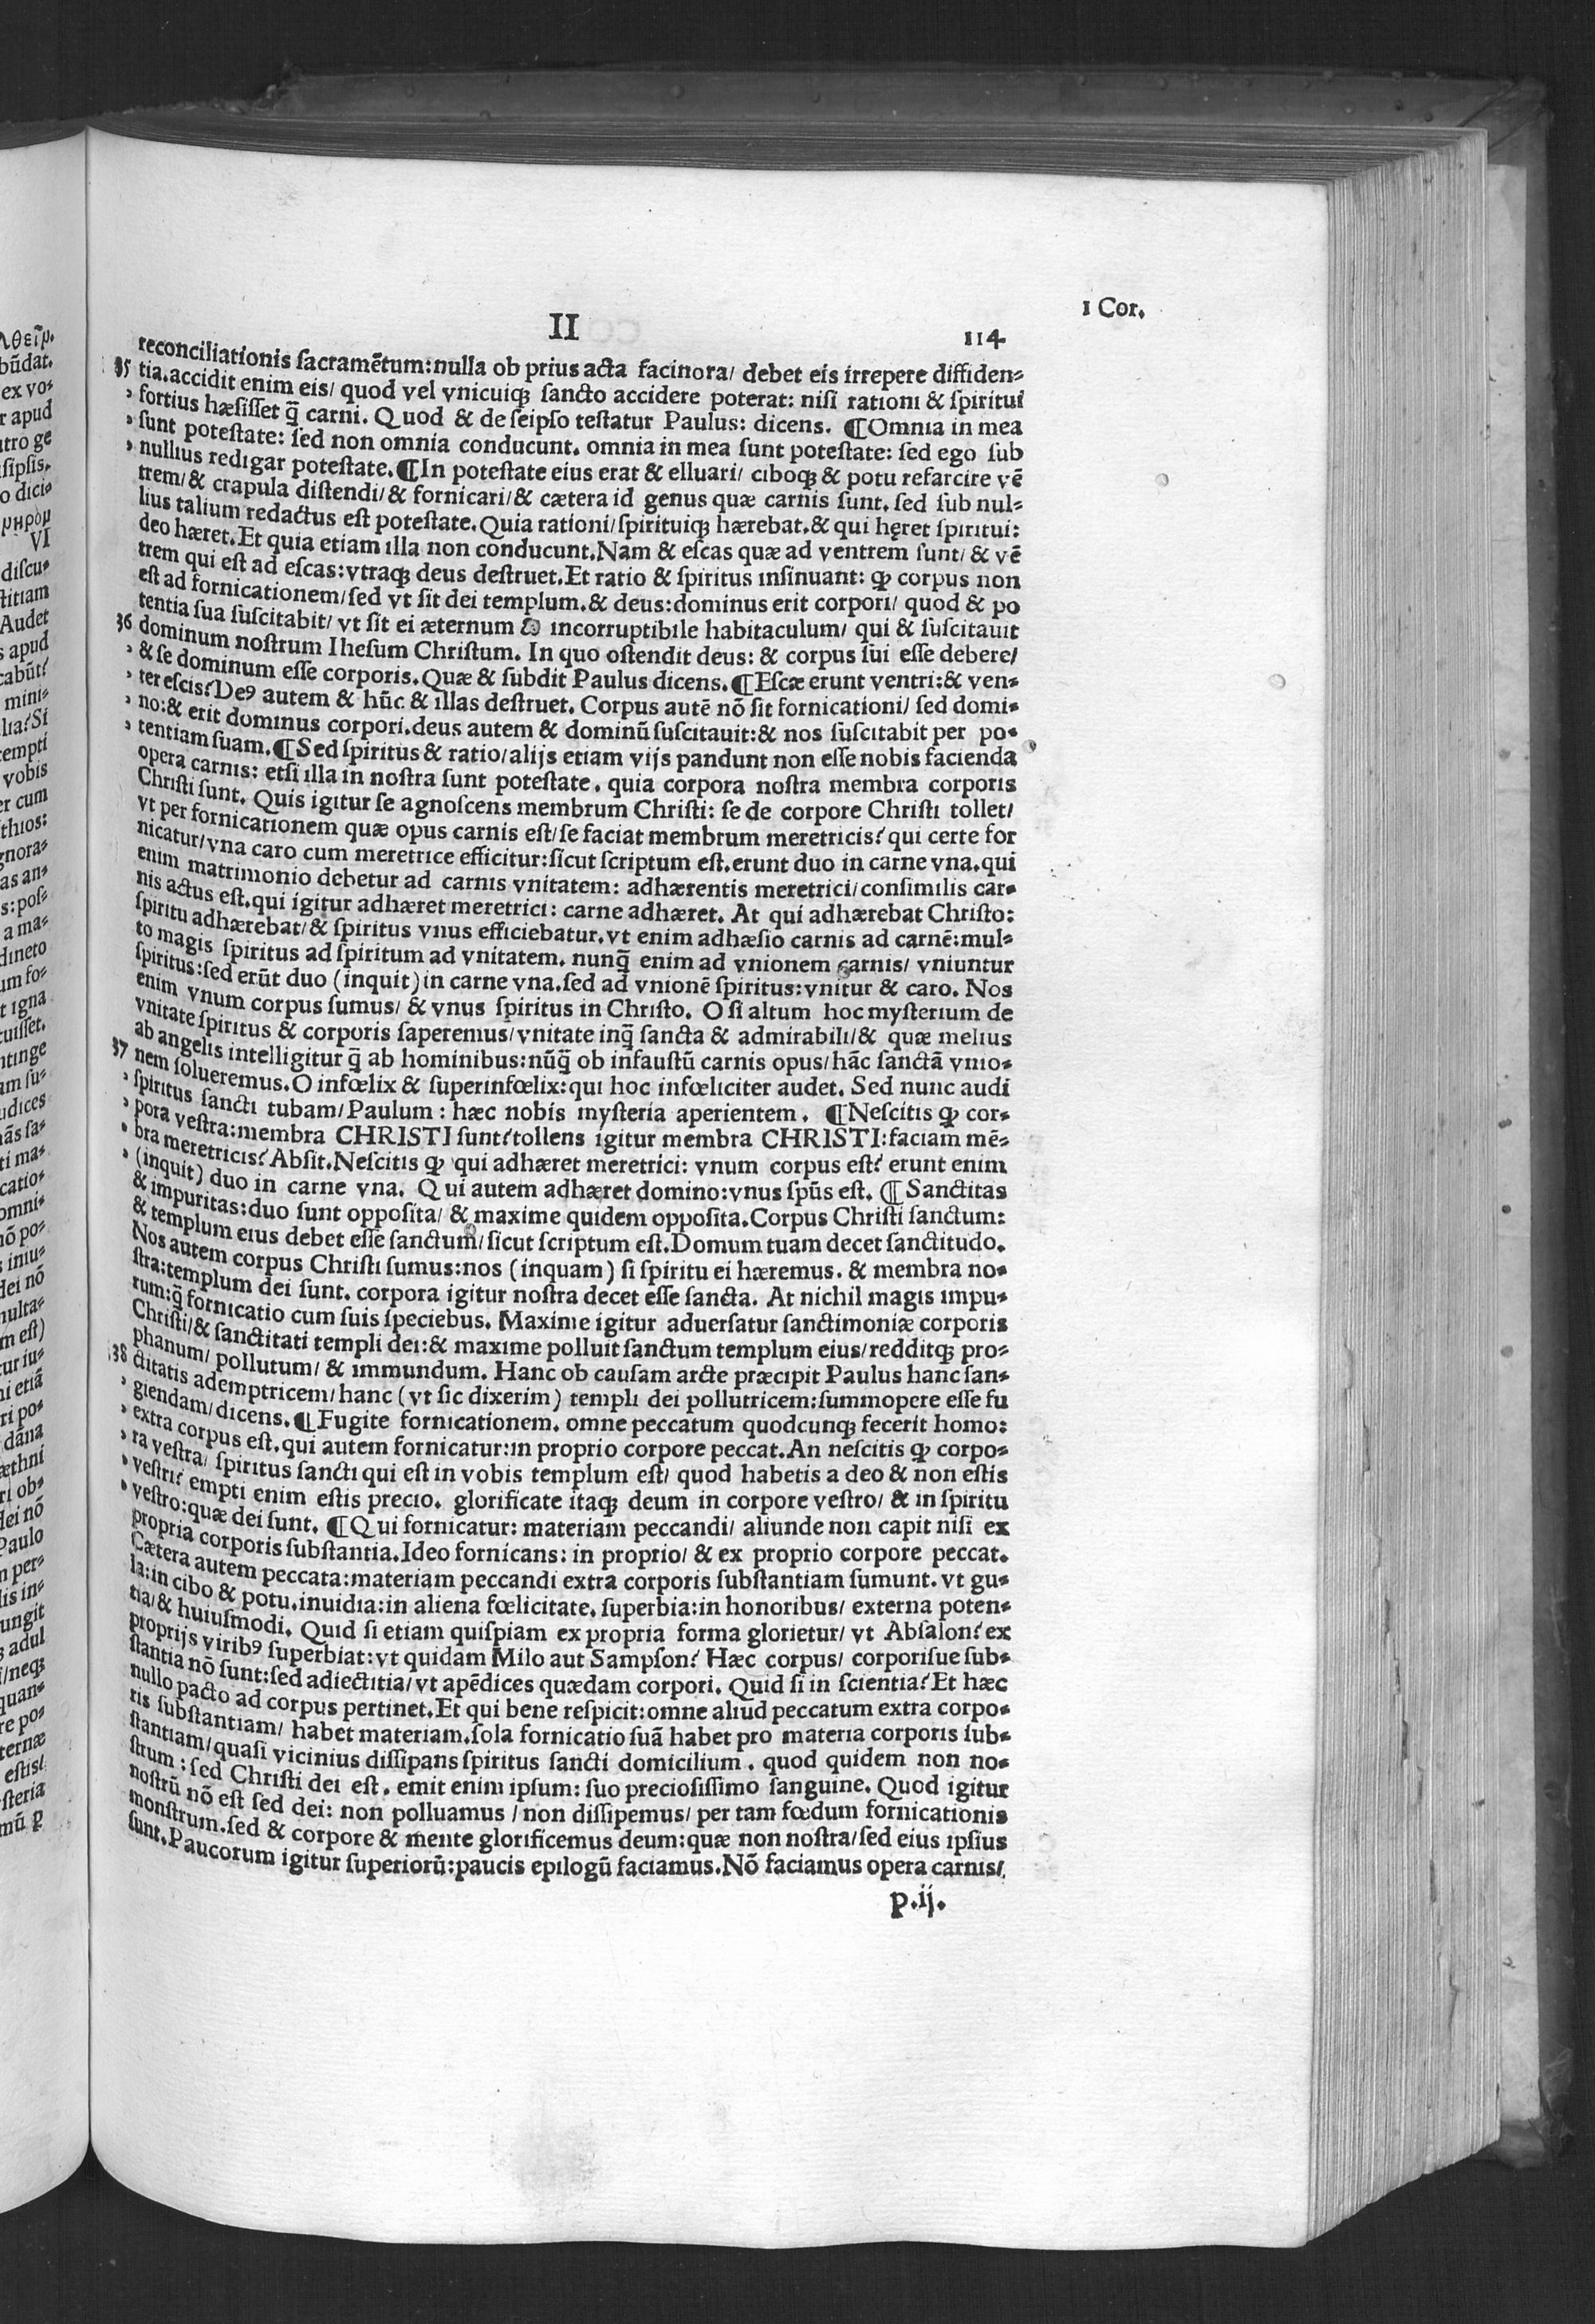 1 Cor.
II
114
reconciliationis ſacramẽtum:nulla ob prius acta facinora/ debet eis irrepere diffiden⸗
35 tia.accidit enim eis/ quod vel vnicuiqȝ ſancto accidere poterat: niſi rationi & ſpiritui
, fortius hæſiſſet q̃ carni. Quod & de ſeipſo teſtatur Paulus: dicens. ¶Omnia in mea
, ſunt poteſtate: ſed non omnia conducunt. omnia in mea ſunt poteſtate: ſed ego ſub
, nullius redigar poteſtate.¶In poteſtate eius erat & elluari/ ciboqȝ & potu refarcire vẽ
trem/& crapula diſtendi/& fornicari/& cætera id genus quæ carnis ſunt. ſed ſub nul⸗
lius talium redactus eſt poteſtate.Quia rationi/ſpirituiqȝ hærebat.& qui hęret ſpiritui:
deo hæret.Et quia etiam illa non conducunt.Nam & eſcas quæ ad ventrem ſunt/ & vẽ
trem qui eſt ad eſcas:vtraqȝ deus deſtruet.Et ratio & ſpiritus inſinuant: ꝙ corpus non
eſt ad fornicationem/ſed vt ſit dei templum.& deus:dominus erit corpori/ quod & po
tentia ſua ſuſcitabit/ vt ſit ei æternum & incorruptibile habitaculum/ qui & ſuſcitauit
36 dominum noſtrum Iheſum Chriſtum. In quo oſtendit deus: & corpus ſui eſſe debere/
, & ſe dominum eſſe corporis.Quæ & ſubdit Paulus dicens.¶Eſcæ erunt ventri:& ven⸗
, ter eſcis?Deꝰ autem & hũc & illas deſtruet. Corpus autẽ nõ ſit fornicationi/ ſed domi⸗
, no:& erit dominus corpori.deus autem & dominũ ſuſcitauit:& nos ſuſcitabit per po⸗
, tentiam ſuam.¶Sed ſpiritus & ratio/alijs etiam vijs pandunt non eſſe nobis facienda
opera carnis: etſi illa in noſtra ſunt poteſtate. quia corpora noſtra membra corporis
Chriſti ſunt. Quis igitur ſe agnoſcens membrum Chriſti: ſe de corpore Chriſti tollet/
vt per fornicationem quæ opus carnis eſt/ſe faciat membrum meretricis? qui certe for
nicatur/vna caro cum meretrice efficitur:ſicut ſcriptum eſt.erunt duo in carne vna.qui
enim matrimonio debetur ad carnis vnitatem: adhærentis meretrici/conſimilis car⸗
nis actus eſt.qui igitur adhæret meretrici: carne adhæret. At qui adhærebat Chriſto:
ſpiritu adhærebat/& ſpiritus vnus efficiebatur.vt enim adhæſio carnis ad carnẽ:mul⸗
to magis ſpiritus ad ſpiritum ad vnitatem. nunq̃ enim ad vnionem carnis/ vniuntur
ſpiritus:ſed erũt duo (inquit) in carne vna.ſed ad vnionẽ ſpiritus:vnitur & caro. Nos
enim vnum corpus ſumus/ & vnus ſpiritus in Chriſto. O ſi altum hoc myſterium de
vnitate ſpiritus & corporis ſaperemus/vnitate inq̃ ſancta & admirabili/& quæ melius
ab angelis intelligitur q̃ ab hominibus:nũq̃ ob infauſtũ carnis opus/hãc ſanctã vnio⸗
37 nem ſolueremus.O infœlix & ſuperinfœlix:qui hoc infœliciter audet. Sed nunc audi
, ſpiritus ſancti tubam/Paulum : hæc nobis myſteria aperientem. ¶Neſcitis ꝙ cor⸗
, pora veſtra:membra CHRISTI ſunt?tollens igitur membra CHRISTI:faciam mẽ⸗
, bra meretricis? Abſit.Neſcitis ꝙ qui adhæret meretrici: vnum corpus eſt? erunt enim
, (inquit) duo in carne vna. Qui autem adhæret domino:vnus ſpũs eſt. ¶Sanctitas
& impuritas:duo ſunt oppoſita/ & maxime quidem oppoſita.Corpus Chriſti ſanctum:
& templum eius debet eſſe ſanctum/ſicut ſcriptum eſt.Domum tuam decet ſanctitudo.
Nos autem corpus Chriſti ſumus:nos (inquam) ſi ſpiritu ei hæremus. & membra no⸗
ſtra:templum dei ſunt. corpora igitur noſtra decet eſſe ſancta. At nichil magis impu⸗
rum:q̃ fornicatio cum ſuis ſpeciebus. Maxime igitur aduerſatur ſanctimoniæ corporis
Chriſti/& ſanctitati templi dei:& maxime polluit ſanctum templum eius/redditqȝ pro⸗
phanum/ pollutum/ & immundum. Hanc ob cauſam arcte præcipit Paulus hanc ſan⸗
38 ctitatis ademptricem/hanc (vt ſic dixerim) templi dei pollutricem:ſummopere eſſe fu
, giendam/dicens.¶Fugite fornicationem. omne peccatum quodcunqȝ fecerit homo:
, extra corpus eſt.qui autem fornicatur:in proprio corpore peccat.An neſcitis ꝙ corpo⸗
, ra veſtra/ ſpiritus ſancti qui eſt in vobis templum eſt/ quod habetis a deo & non eſtis
, veſtri? empti enim eſtis precio. glorificate itaqȝ deum in corpore veſtro/ & in ſpiritu
, veſtro:quæ dei ſunt. ¶Qui fornicatur: materiam peccandi/ aliunde non capit niſi ex
propria corporis ſubſtantia.Ideo fornicans: in proprio/ & ex proprio corpore peccat.
Cætera autem peccata:materiam peccandi extra corporis ſubſtantiam ſumunt. vt gu⸗
la:in cibo & potu.inuidia:in aliena fœlicitate. ſuperbia:in honoribus/ externa poten⸗
tia/& huiuſmodi. Quid ſi etiam quiſpiam ex propria forma glorietur/ vt Abſalon? ex
proprijs viribꝰ ſuperbiat:vt quidam Milo aut Sampſon? Hæc corpus/ corporiſue ſub⸗
ſtantia nõ ſunt:ſed adiectitia/vt apẽdices quædam corpori. Quid ſi in ſcientia? Et hæc
nullo pacto ad corpus pertinet.Et qui bene reſpicit:omne aliud peccatum extra corpo⸗
ris ſubſtantiam/ habet materiam.ſola fornicatio ſuã habet pro materia corporis ſub⸗
ſtantiam/quaſi vicinius diſſipans ſpiritus ſancti domicilium. quod quidem non no⸗
ſtrum:ſed Chriſti dei eſt. emit enim ipſum: ſuo precioſiſſimo ſanguine. Quod igitur
noſtrũ nõ eſt ſed dei: non polluamus/non diſſipemus/ per tam fœdum fornicationis
monſtrum.ſed & corpore & mente glorificemus deum:quæ non noſtra/ſed eius ipſius
ſunt.Paucorum igitur ſuperiorũ:paucis epilogũ faciamus.Nõ faciamus opera carnis/
p.ij.